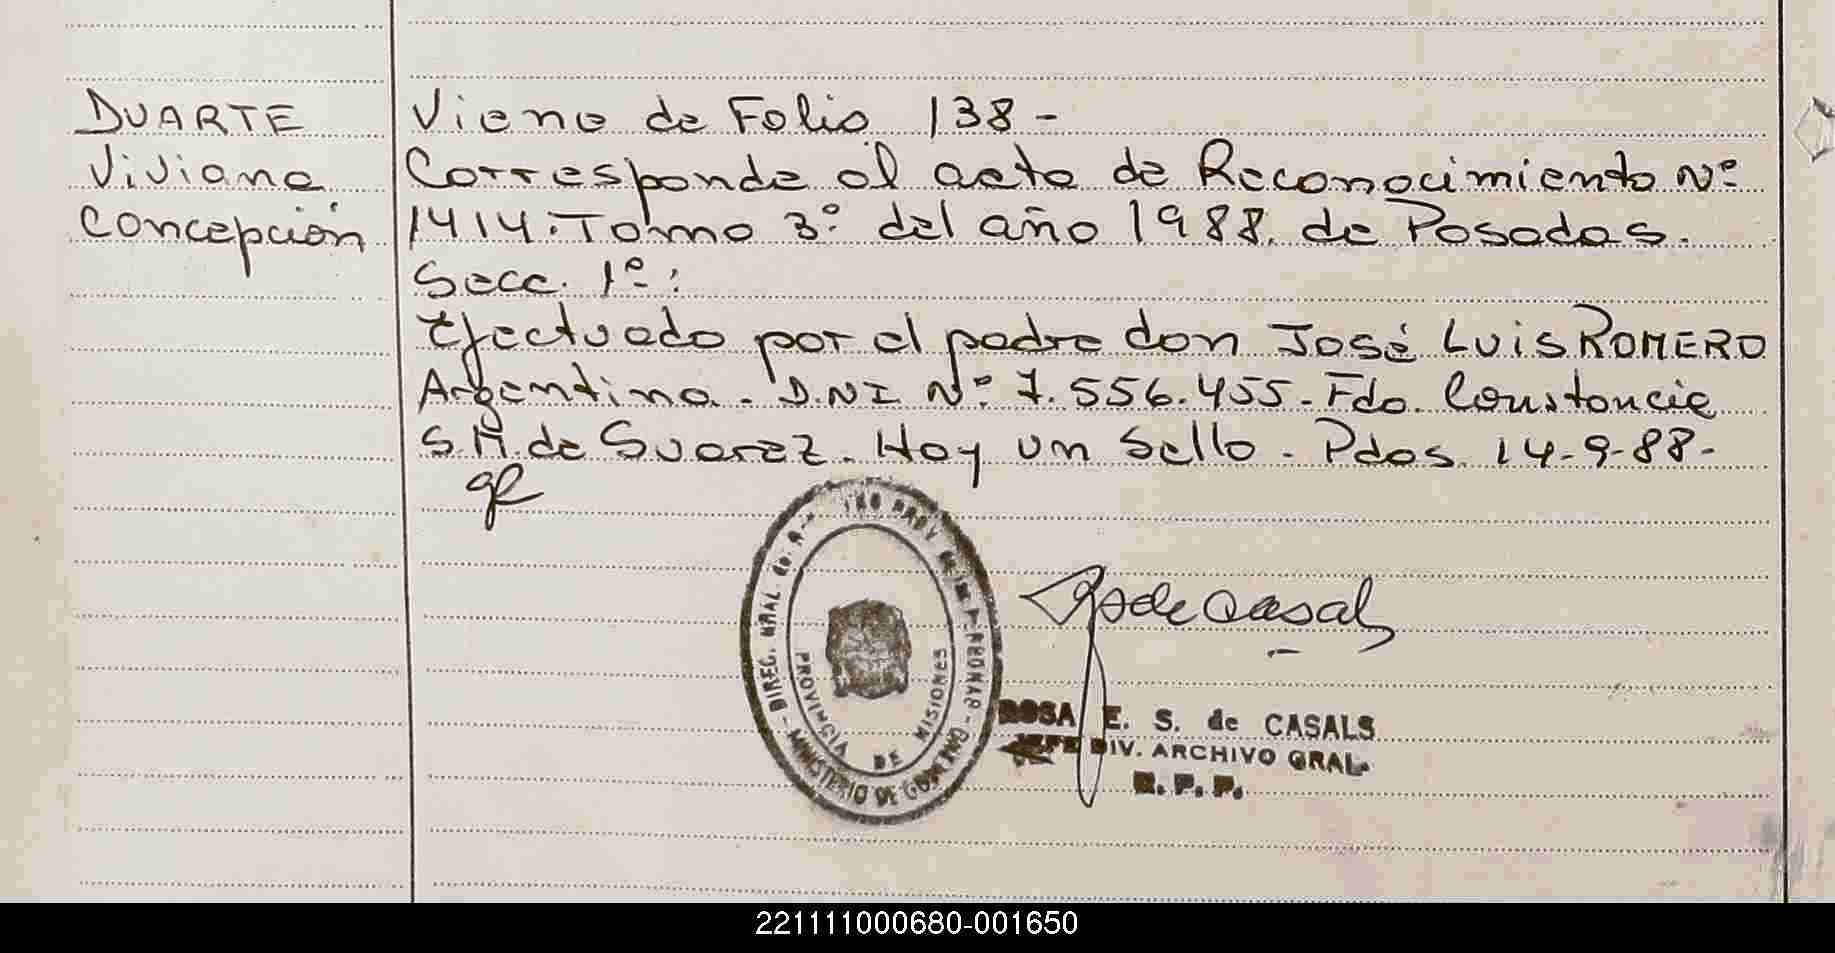 DUARTE
Viviana
Concepción
Viene de Folio 138 -
Corresponde al acta de Reconocimiento Nº
1414. Tomo 3º del año 1988. de Posadas.
Secc. 1º:
Efectuado por el padre don José Luis ROMERO
Argentino. D.N.I Nº 7.556.455. Fdo. Constancia
S.M. de Suarez. Hay un Sello. Pdas. 14-9-88-
PROV. de las PERSONAS
DIREG. GRAL. de
MINISTERIO DE GOBIERNO
PROVINCIA DE MISIONES
de Casals
ROSA E. S. de CASALS
JEFE DIV. ARCHIVO GRAL.
R. P. P.
221111000680-001650